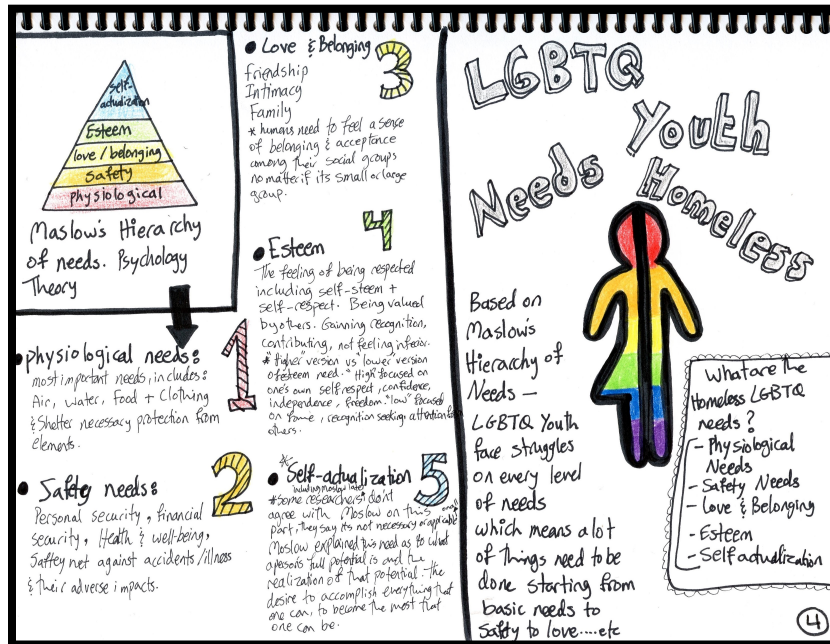 self-
actualization
Esteem
love / belonging
safety
physiological
Maslow's Hierarchy
of needs. Psychology
Theory
1
• physiological needs:
most important needs, includes:
Air, water, Food + Clothing
& Shelter necessary protection from
elements.
2
• Safety needs:
Personal security, financial
security, Health & well-being,
Saftey net against accidents/illness
& their adverse impacts.
3
• Love & Belonging
friendship
Intimacy
Family
* humans need to feel a sense
of belonging & acceptance
among their social groups
no matter if its small or large
group.
4
• Esteem
The feeling of being respected
including self-steem +
self-respect. Being valued
by others. Gainning recognition,
contributing, not feeling inferior.
* "higher" version vs "lower" version
of esteem need. "High" focused on
one's own self respect, confidence,
independence, freedom. "low" focused
on fame, recognition seeking attention from
others.
5
* • Self-actualization
including Maslow later
* some researchers don't
agree with Maslow on this
part, they say its not necessary or applicable
Maslow explained this need as to what
a person's full potential is and the
realization of that potential - the
desire to accomplish everything that
one can, to become the most that
one can be.
LGBTQ
Youth
Homeless
Needs
Based on
Maslow's
Hierarchy of
Needs —
LGBTQ Youth
face struggles
on every level
of needs
which means a lot
of things need to be
done starting from
basic needs to
safety to love.....etc
What are the
Homeless LGBTQ
needs?
- Physiological
Needs
- Safety Needs
- Love & Belonging
- Esteem
- Self actualization
4